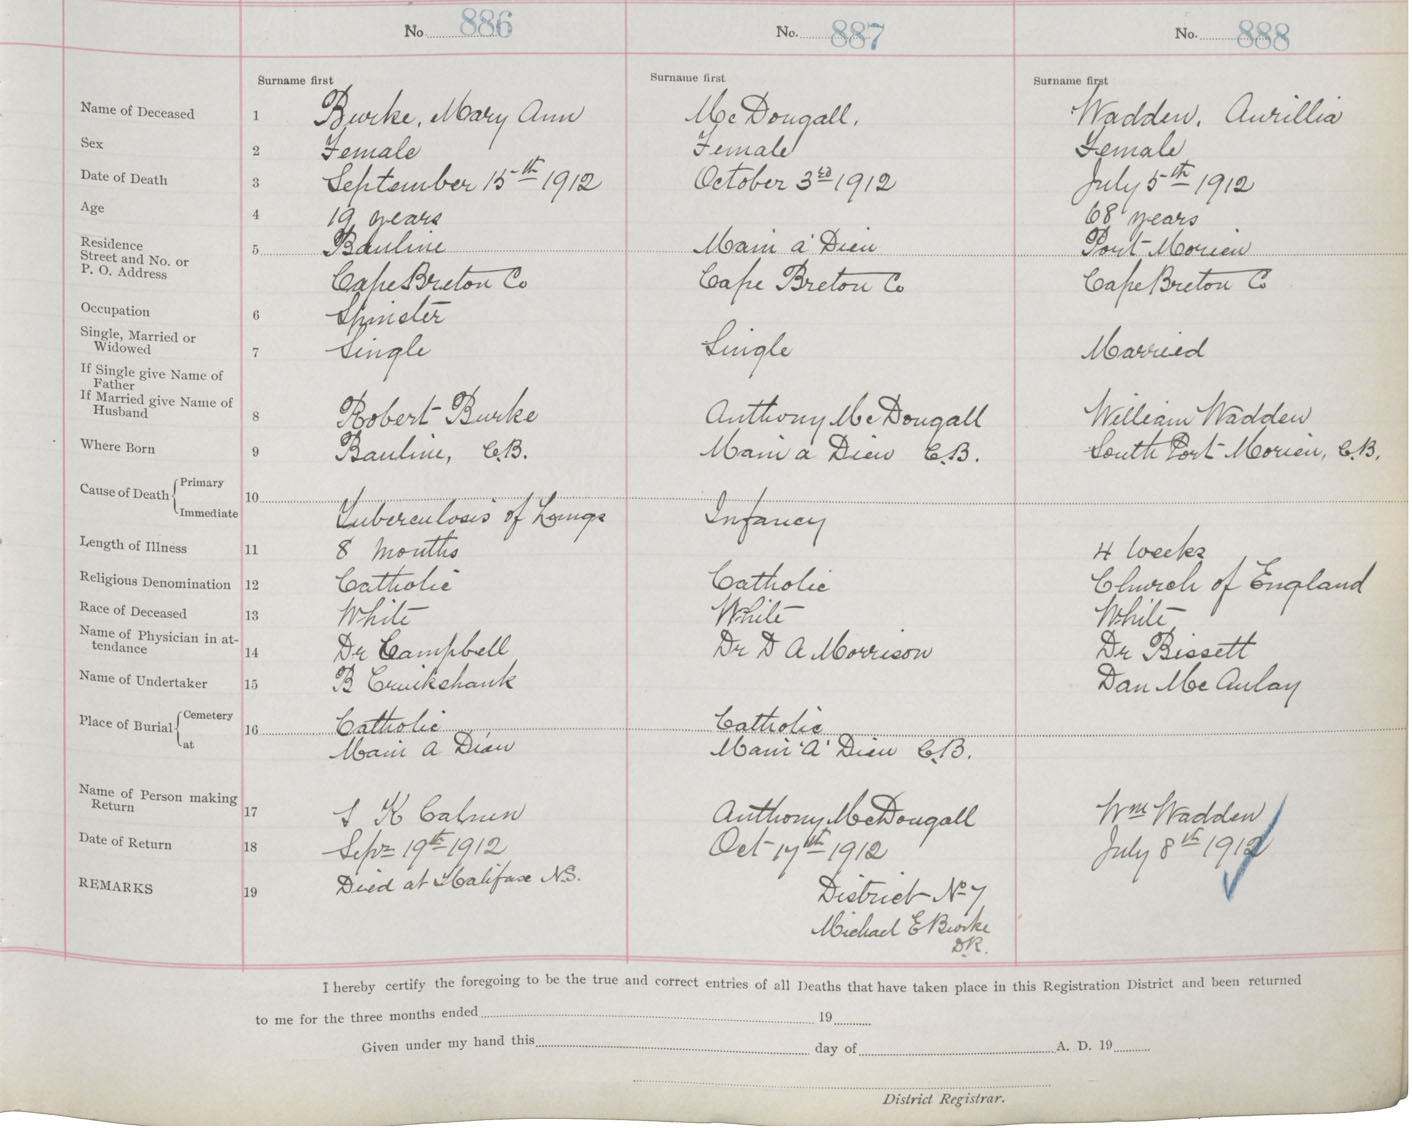 No 886 No. 887 No. 888
Surname first Surname first Surname first
Name of Deceased 1 Burke, Mary Ann McDougall, Wadden, Aurillia
Sex 2 Female Female Female
Date of Death 3 September 15th 1912 October 3rd 1912 July 5th 1912
Age 4 19 years 68 years
Residence
Street and No. or
P. O. Address
5 Bauline Main a' Dieu Port Morien
Cape Breton Co Cape Breton Co Cape Breton Co
Occupation 6 Spinster
Single, Married or
Widowed 7 Single Single Married
If Single give Name of
Father
If Married give Name of
Husband 8 Robert Burke Anthony McDougall William Wadden
Where Born 9 Bauline, C.B. Main a Dieu C.B. South Port Morien, C.B.
Cause of Death Primary 10
Immediate Tuberculosis of Lungs Infancy
Length of Illness 11 8 months 4 weeks
Religious Denomination 12 Catholic Catholic Church of England
Race of Deceased 13 White White White
Name of Physician in at-
tendance 14 Dr Campbell Dr D A Morrison Dr Bissett
Name of Undertaker 15 B Cruikshank Dan McAulay
Place of Burial Cemetery 16 Catholic Catholic
at Main A Dieu Main 'A' Dieu C.B.
Name of Person making
Return 17 K Anthony McDougall Wm Wadden
Date of Return 18 Sept 19th 1912 Oct 17th 1912 July 8th 1912
REMARKS 19 Died at Halifax N.S. District No 7
Michael E Burke
D.R.
I hereby certify the foregoing to be the true and correct entries of all Deaths that have taken place in this Registration District and been returned
to me for the three months ended 19
Given under my hand this day of A. D. 19
District Registrar.